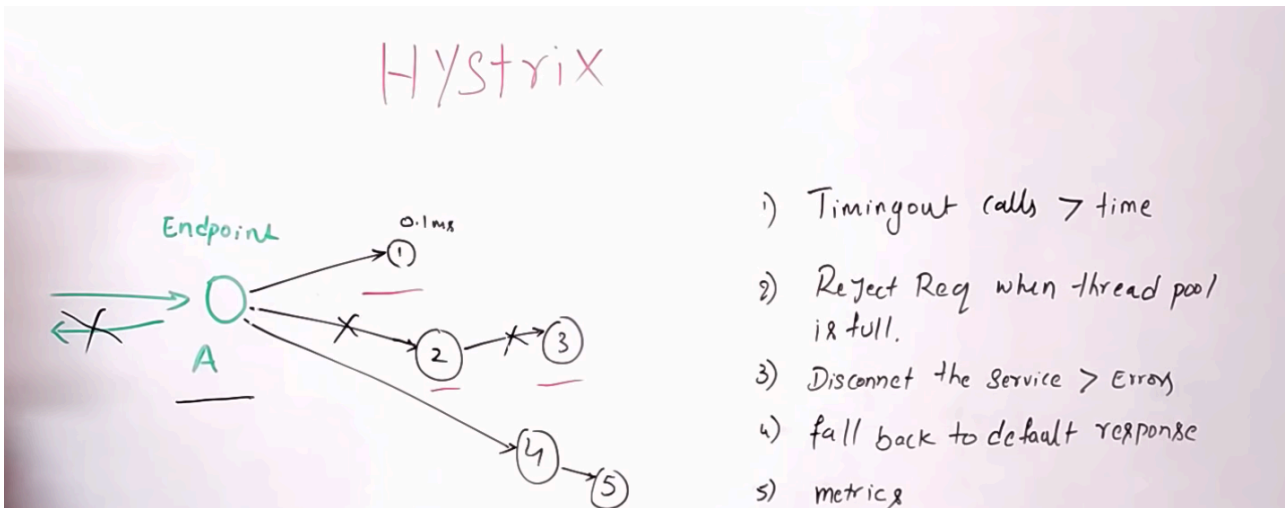 HYStrix
Endpoint
A
0.1ms
1
2
3
4
5
1) Timingout calls > time
2) Reject Req when thread pool
is full.
3) Disconnet the service > Errors
4) fall back to default response
5) metrics